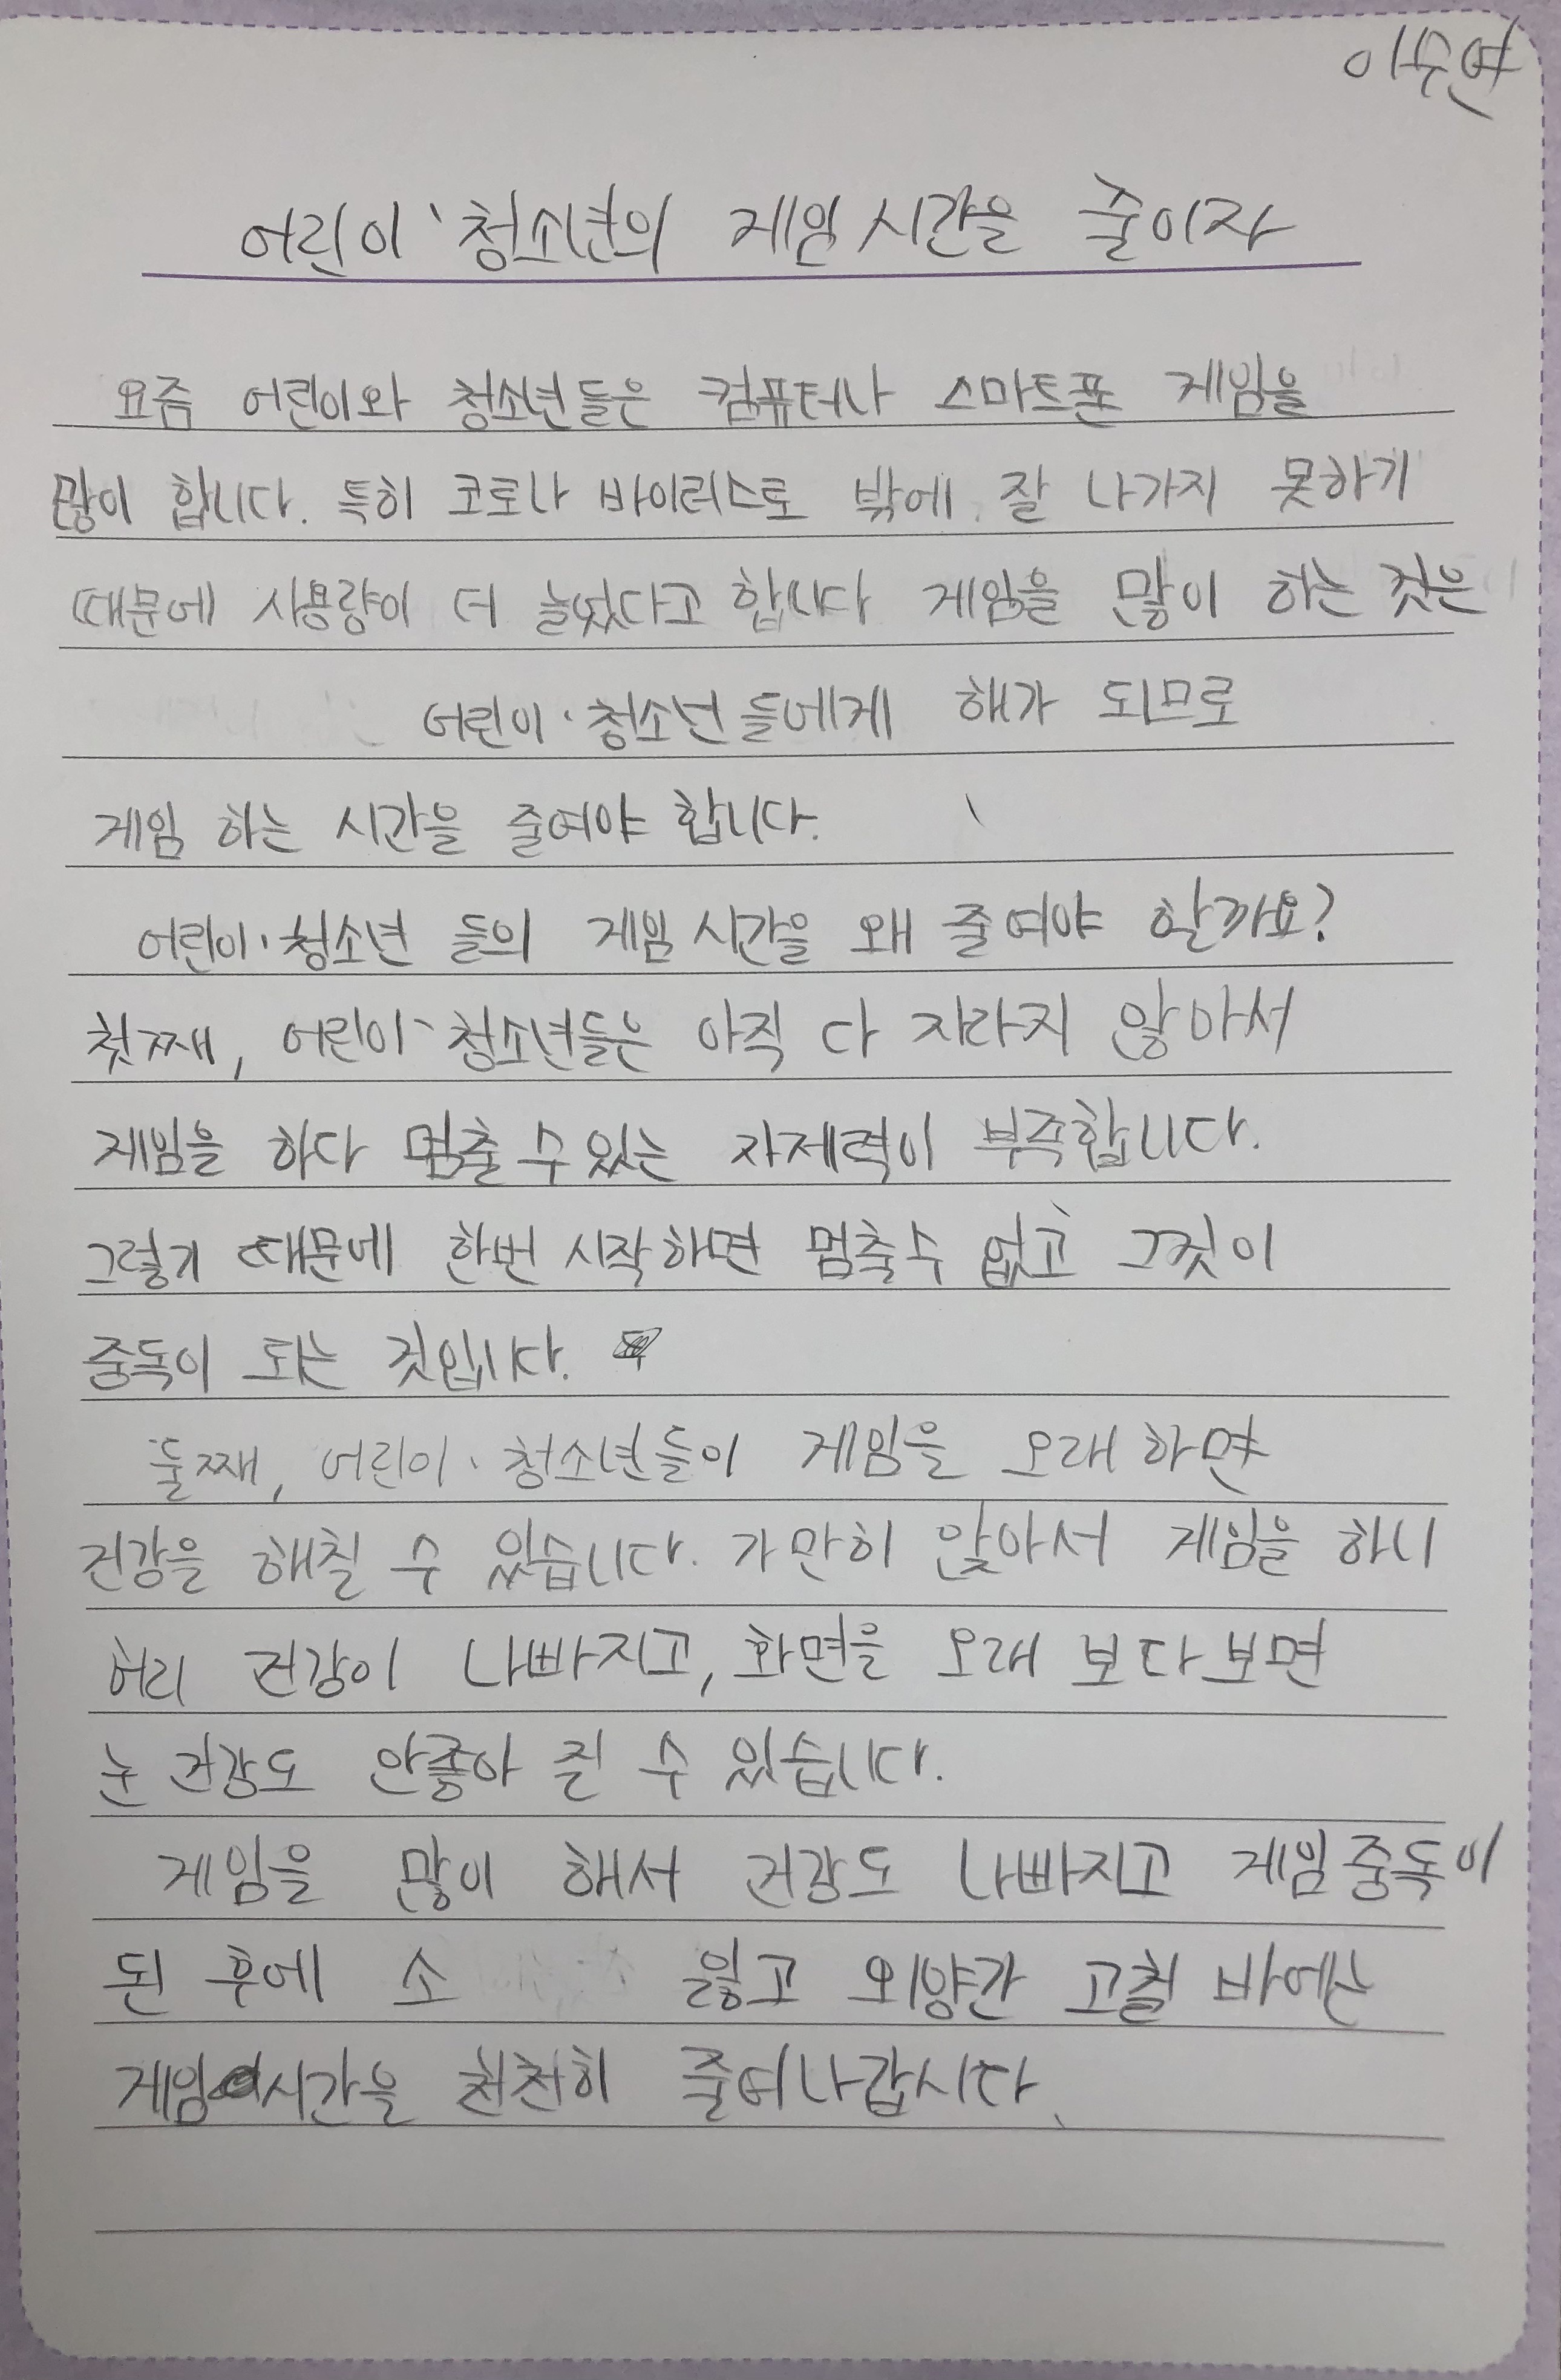 이수연
어린이·청소년의 게임 시간을 줄이자
요즘 어린이와 청소년들은 컴퓨터나 스마트폰 게임을
많이 합니다. 특히 코로나 바이러스로 밖에 잘 나가지 못하기
때문에 사용량이 더 늘었다고 합니다 게임을 많이 하는 것은
어린이·청소년 들에게 해가 되므로
게임 하는 시간을 줄여야 합니다.
어린이·청소년 들의 게임 시간을 왜 줄여야 할까요?
첫째, 어린이·청소년들은 아직 다 자라지 않아서
게임을 하다 멈출 수 있는 자제력이 부족합니다.
그렇기 때문에 한번 시작하면 멈출수 없고 그것이
중독이 되는 것입니다.
둘째, 어린이·청소년들이 게임을 오래하면
건강을 해칠 수 있습니다. 가만히 앉아서 게임을 하니
허리 건강이 나빠지고, 화면을 오래 보다보면
눈 건강도 안좋아 질 수 있습니다.
게임을 많이 해서 건강도 나빠지고 게임중독이
된 후에 소 잃고 외양간 고칠 바에는
게임시간을 천천히 줄여나갑시다.